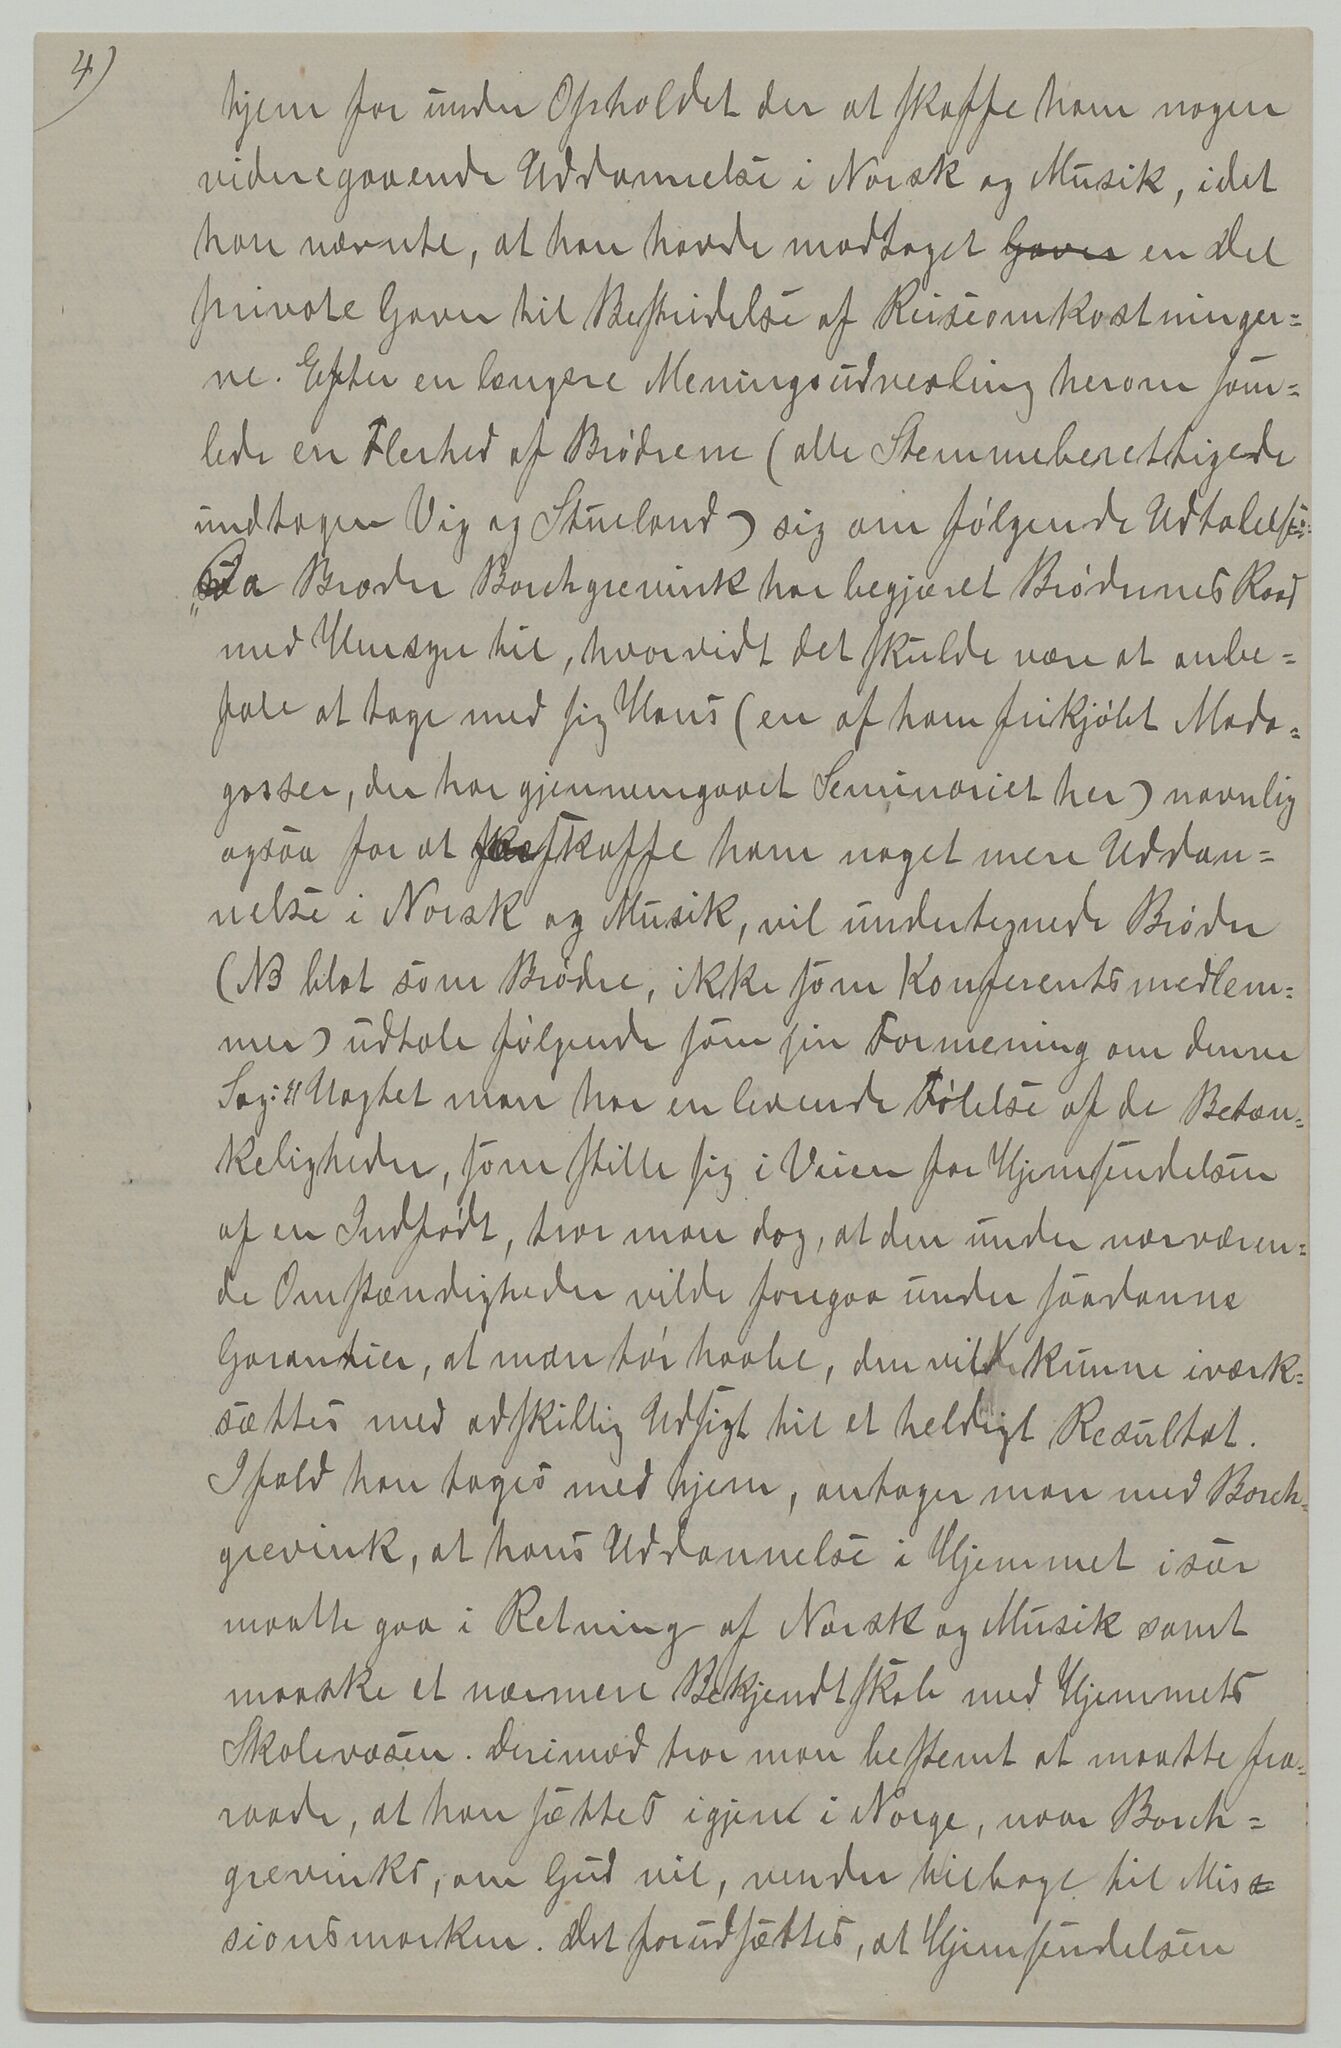 4)
hjem for under Opholdet der at skaffe ham nogen
videregaaende Uddannelse i Norsk og Musik, idet
han nævnte, at han havde modtaget Gaver en Del
private Gaver til Bestridelse af Reiseomkostninger=
ne. Efter en længere Meningsudvexling herom sam=
lede en Flerhed af Brødrene (alle Stemmeberettigede
undtagen Vig og Stueland) sig om følgende Udtalelse:
"Da Broder Borchgrevink har begjæret Brødrenes Raad
med Hensyn til, hvorvidt det skulde være at anbe=
fale at tage med sig Hans (en af ham frikjøbt Mada=
gasser, der har gjennemgaaet Seminariet her) navnlig
ogsaa for at skaffe ham noget mere Uddan=
nelse i Norsk og Musik, vil undertegnede Brødre
(NB blot som Brødre, ikke som Konferentsmedlem=
mer) udtale følgende som sin Formening om denne
Sag: "Uagtet man har en levende Følelse af de Betæn=
keligheder, som stille sig i Veien for Hjemsendelsen
af en Indfødt, tror man dog, at den under nærværen=
de Omstændigheder vilde foregaa under saadanne
Garantier, at man tør haabe, den vil kunne iværk=
sættes med adskillig Udsigt til et heldigt Resultat.
Ifald han tages med hjem, antager man med Borch=
grevink, at hans Uddannelse i Hjemmet især
maatte gaa i Retning af Norsk og Musik samt
maaske et nærmere Bekjendtskab med Hjemmets
Skolevæsen. Derimod tror man bestemt at maatte fra=
raade, at han sættes igjen i Norge, naar Borch=
grevinks, om Gud vil, vender tilbage til Mis=
sionsmarken. Det forudsættes, at Hjemsendelsen